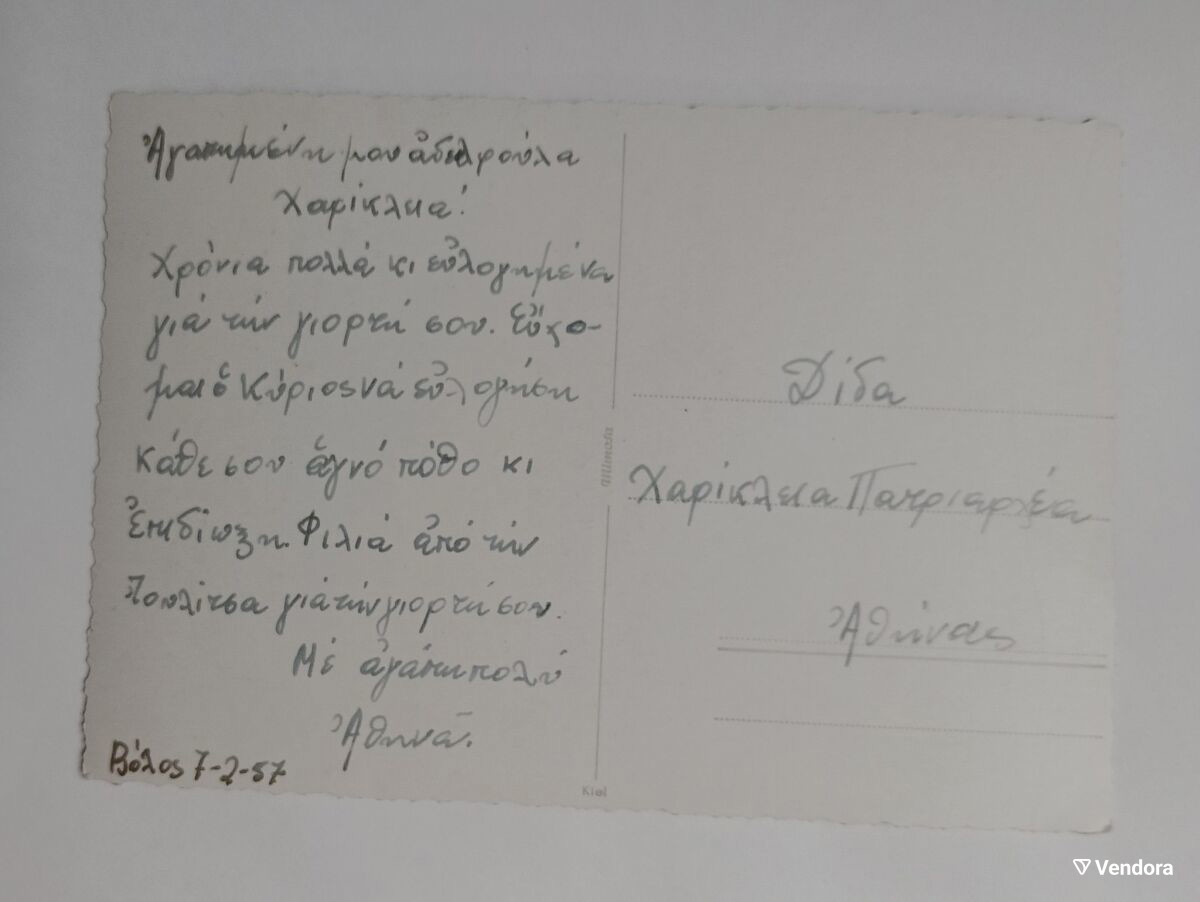 Ἀγαπημένη μου ἀδελφούλα
Χαρίκλεια!
Χρόνια πολλά κι εὐλογημένα
γιά τήν γιορτή σου. Εὔχο-
μαι ὁ Κύριος νά εὐλογήση
κάθε σου ἁγνό πόθο κι
ἐπιδίωξη. Φιλιά ἀπό τήν
Τουλίτσα γιά τήν γιορτή σου.
Μέ ἀγάπη πολύ
Ἀθηνᾶ.
Βόλος 7-2-57
Mimosa
Kiel
Δίδα
Χαρίκλεια Πατριαρχέα
Ἀθήνας
Vendora